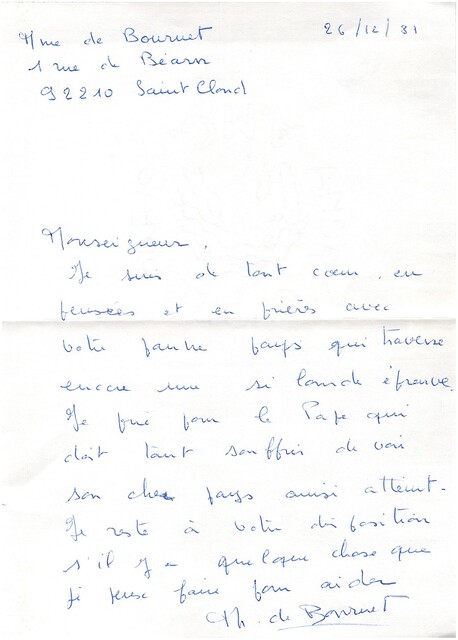 Mme de Bournet
26/12/81
1 rue de Béarn
92210 Saint Cloud
Monseigneur,
Je suis de tout coeur, en
pensées et en prières avec
votre pauvre pays qui traverse
encore une si lourde épreuve.
Je prie pour le Pape qui
doit tant souffrir de voir
son cher pays ainsi atteint.
Je reste à votre disposition
s'il y a quelque chose que
je peux faire pour aider
Th. de Bournet